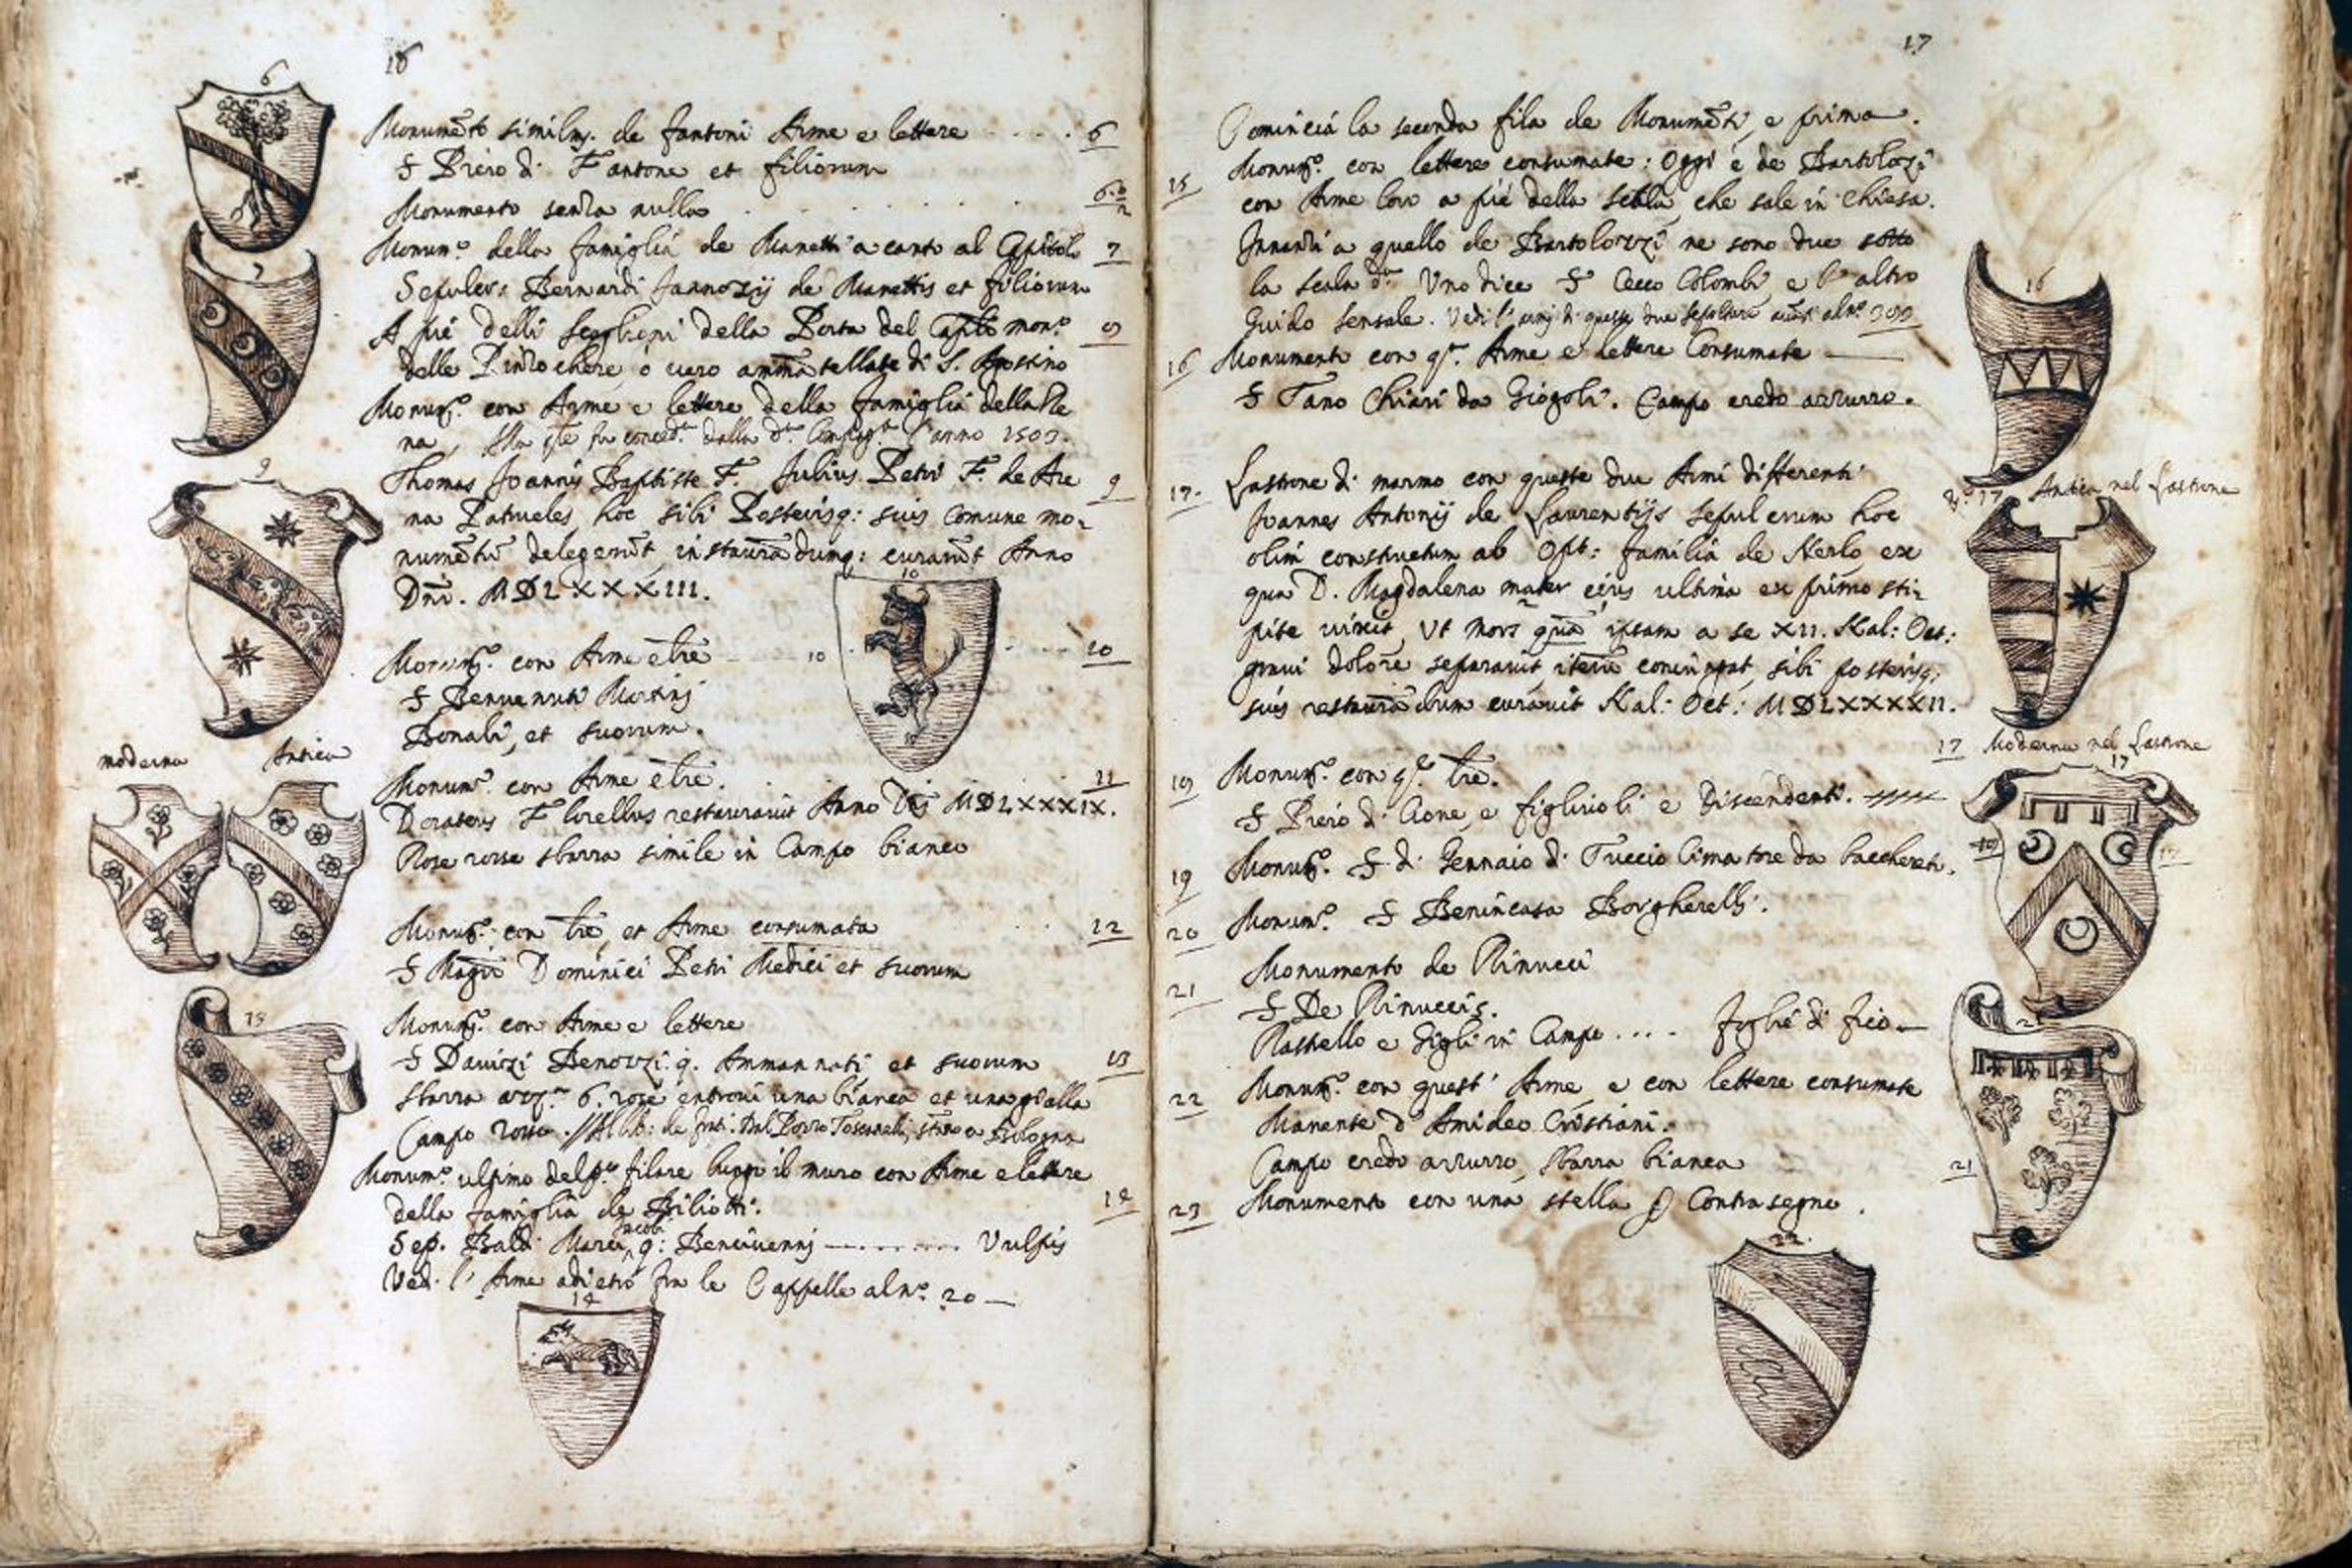 16
6
Monumēto similm. de Fantoni Arme e lettere 6
S Piero di Fantone et filiorum
Monumento senza nulla
7
Monum.º della famiglia de Manetti a canto al Capitolo 7
Sepulcr: Bernardi Jannozij de Manettis et filiorum
A piè delli scaglioni della Porta del Caplo mon.º
delle Pinzochere, o vero ammātellate di S. Agostino
Monum.º con Arme e lettere della famiglia della Re
na, dalla d.ª l'anno 1507.
9
Thomas Joannis Baptiste F. Julius Petri F. de Are 9
na Patrueles hoc sibi Posterisq: suis comune mo-
numētū delegerūt, instaurādumq: curarūt Anno
Dnī. MDLXXXIII.
10
Monum. con Arme e lre 10 10
S Benvenuti Martini
Bonabi, et suorum.
moderna Antica
Monum.º con Arme e lre. 11
Donatus Florellus restauravit Anno Dnī MDLXXXIX.
Rose rosse sbarra simile in Campo bianco
Monum.º con lre, et Arme consumata 12
S Magrī Dominici Petri Medici et suorum
13
Monum. con Arme e lettere
S Davizi Benozzi q. Ammannati et suorum 13
Sbarra azz.ª 6. rose entrovi una bianca et una gialla
Campo rosso. // de frati. Dal Pozzo Toscanelli, stāno a Bologna
Monum.º ultimo del p.º filare lungo il muro con Arme e lettere
della famiglia de Biliotti. 14
Jacobi
Sep. Baldi Marci q: Bencivenni Vulpis
Ved. l'Arme adietro fra le Cappelle al n.º 20
14
17
Comincia la seconda fila de Monumēti, e prima.
15 Monum.º con lettere consumate: Oggi è de Bartolozzi
con Arme loro a piè della scala, che sale in Chiesa.
Innanzi a quello de Bartolozzi ne sono due sotto
la scala d.ª Uno dice S Cecco Colombi, e l'altro
Guido sensale. Vedi l'armi di queste due sepolture
16
16 Monumento con q.ª Arme e lettere Consumate
S Tano Chiari da Giogoli. Campo credo azzurro.
N.º 17 Antica nel Lastrone
17. Lastrone di marmo con queste due Armi differenti
Joannes Antonij de Laurentijs sepulcrum hoc
olim constructum ab Opt: familia de Nerlo ex
qua D. Magdalena mater eius ultima ex primo sti-
pite vixit, Ut mors quā ipsam a se XII. Kal: Oct:
gravi dolore separavit, iterū coniungat, sibi posterisq;
suis restaurādum curavit Kal: Oct: MDLXXXXII.
17 Moderna nel Lastrone
17
Monum.º con q.ª lre.
S Piero di Cione, e figlivoli e Discendenti.
19 Monum.º S di Gennaio di Tuccio Cimatore da bacchereto.
20 Monum.º S Benincasa Borgherelli.
Monumento de Rinucci
21 S De Rinuccis.
Rastello e Gigli in Campo .... foglie di fico
21
22 Monum.º con quest' Arme, e con lettere consumate
Manente d'Amideo Cristiani.
Campo credo azzurro, sbarra bianca
21
23 Monumento con una stella p Contrasegno.
22.